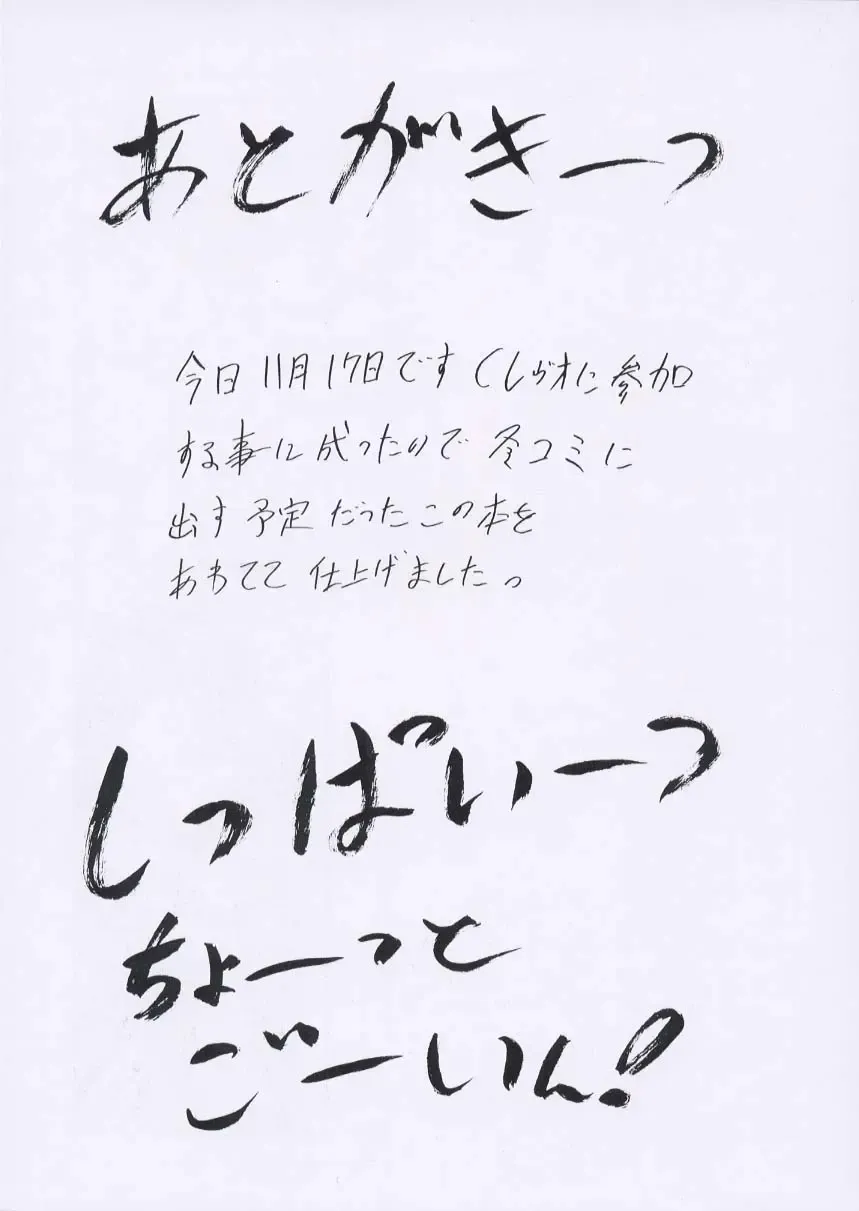 あとがきーっ
今日11月17日です くしゲオに参加
する事に成ったので 冬コミに
出す予定だったこの本を
あわてて仕上げました。
しっぱいーっ
ちょーっと
ごーいん!